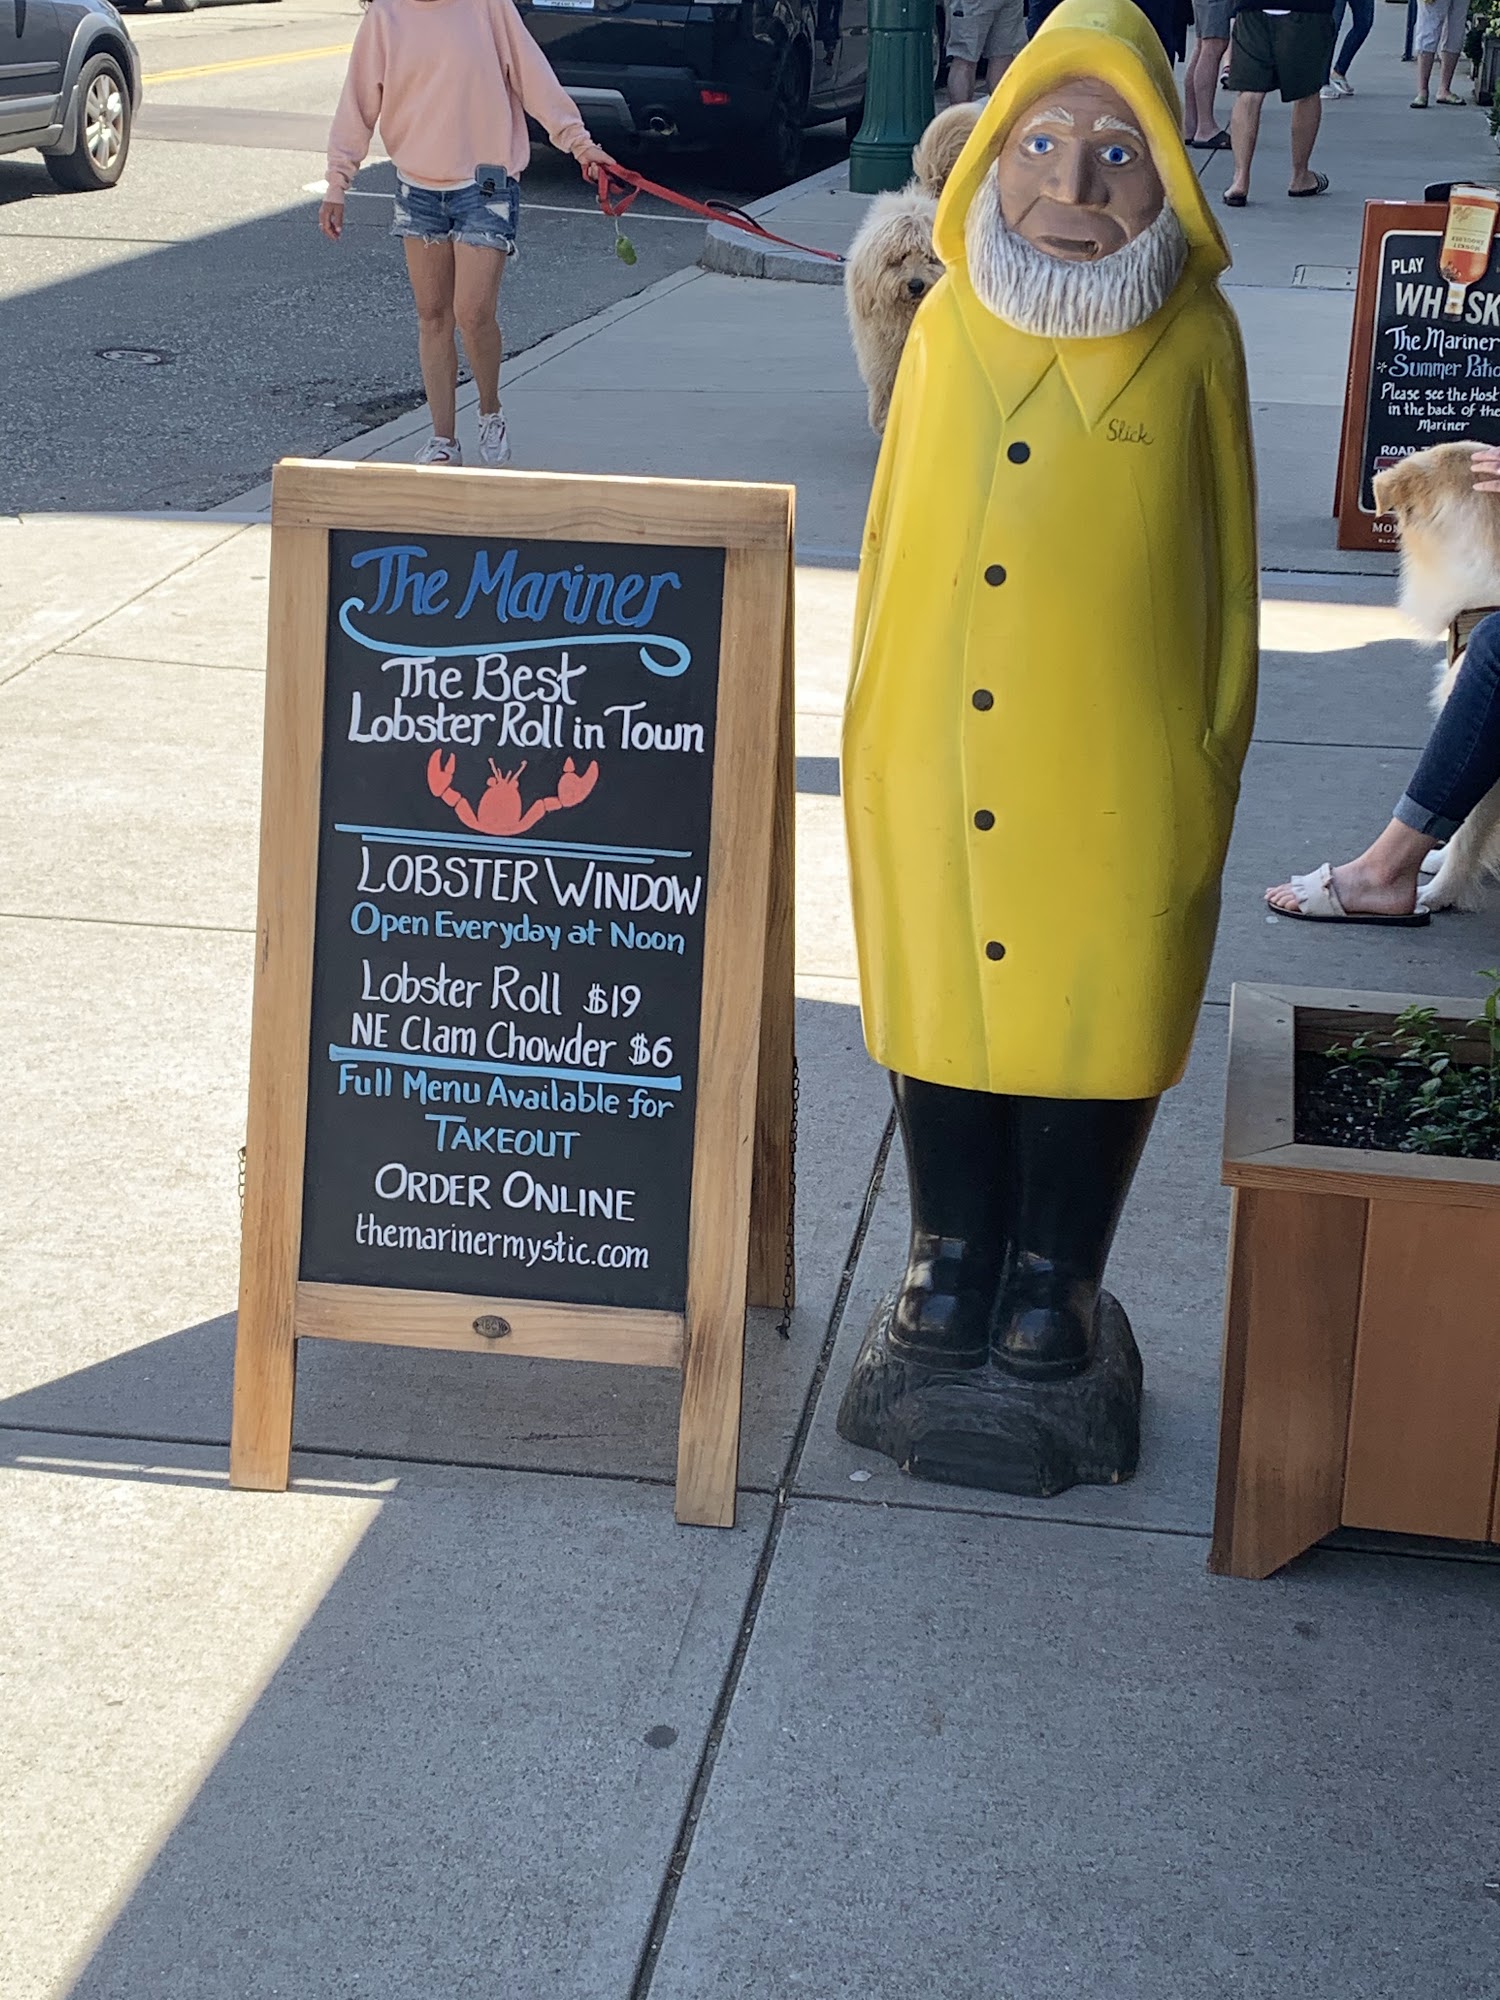 The Mariner
The Best
Lobster Roll in Town
LOBSTER WINDOW
Open Everyday at Noon
Lobster Roll $19
NE Clam Chowder $6
Full Menu Available for
TAKEOUT
ORDER ONLINE
themarinermystic.com
Slick
PLAY
The Mariner
*Summer Patio
Please see the Host
in the back of the
Mariner
ROAD